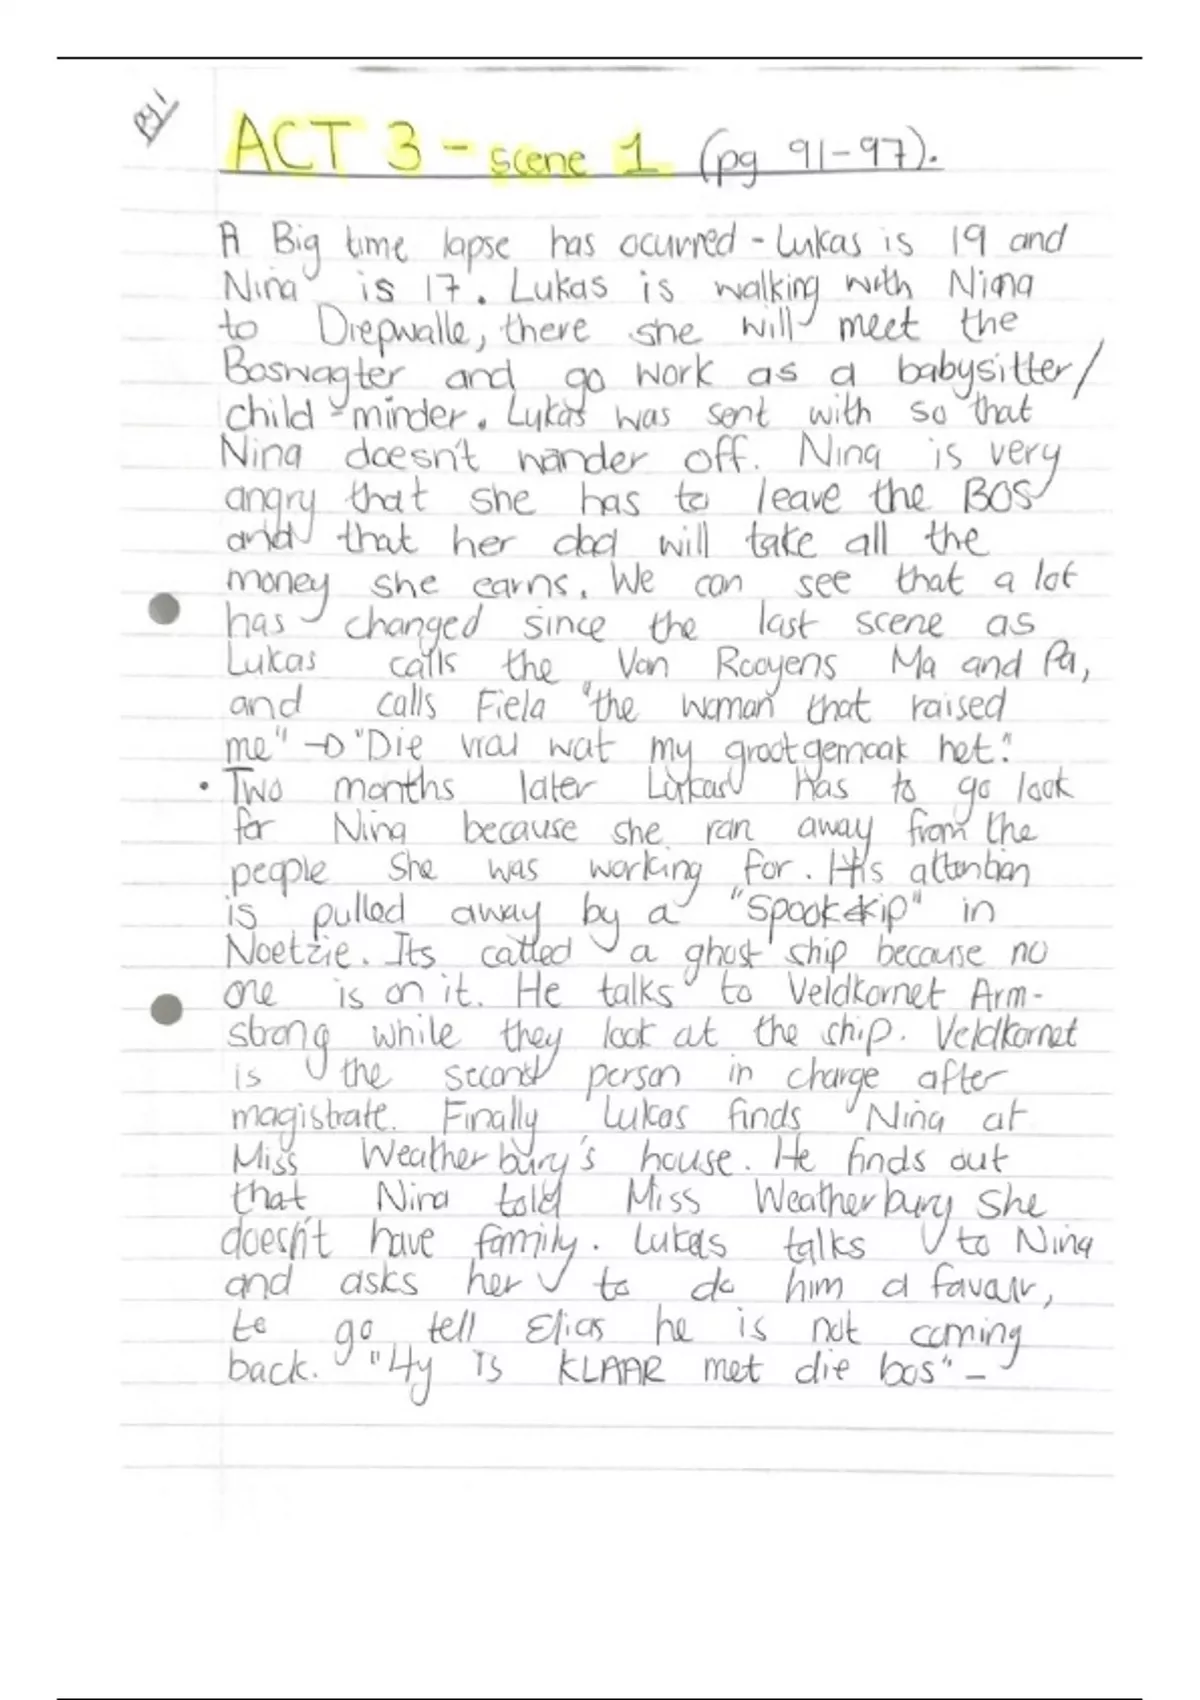 pg 1
ACT 3 - scene 1 (pg 91-97).
A Big time lapse has ocurred - Lukas is 19 and
Nina is 17. Lukas is walking with Nina
to Diepwalle, there she will meet the
Boswagter and go work as a babysitter/
child-minder. Lukas was sent with so that
Nina doesn't wander off. Nina is very
angry that she has to leave the BOS
and that her dad will take all the
money she earns. We can see that a lot
has changed since the last scene as
Lukas calls the Van Rooyens Ma and Pa,
and calls Fiela "the woman that raised
me" → "Die vrou wat my grootgemaak het."
• Two months later Lukas has to go look
for Nina because she ran away from the
people she was working for. His attention
is pulled away by a "spookskip" in
Noetzie. Its called a ghost ship because no
one is on it. He talks to Veldkornet Arm-
strong while they look at the ship. Veldkornet
is the second person in charge after
magistrate. Finally Lukas finds Nina at
Miss Weatherbury's house. He finds out
that Nina told Miss Weatherbury she
doesn't have family. Lukas talks to Nina
and asks her to do him a favour,
to go tell Elias he is not coming
back. "Hy is KLAAR met die bos" -